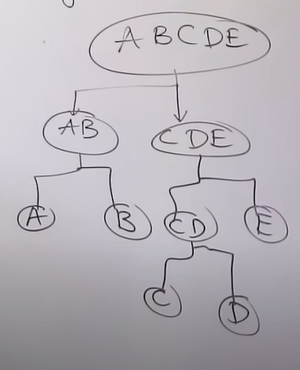 ABCDE
AB
CDE
A
B
CD
E
C
D